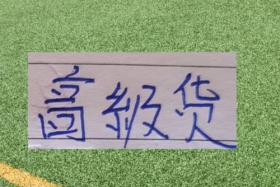 高級货